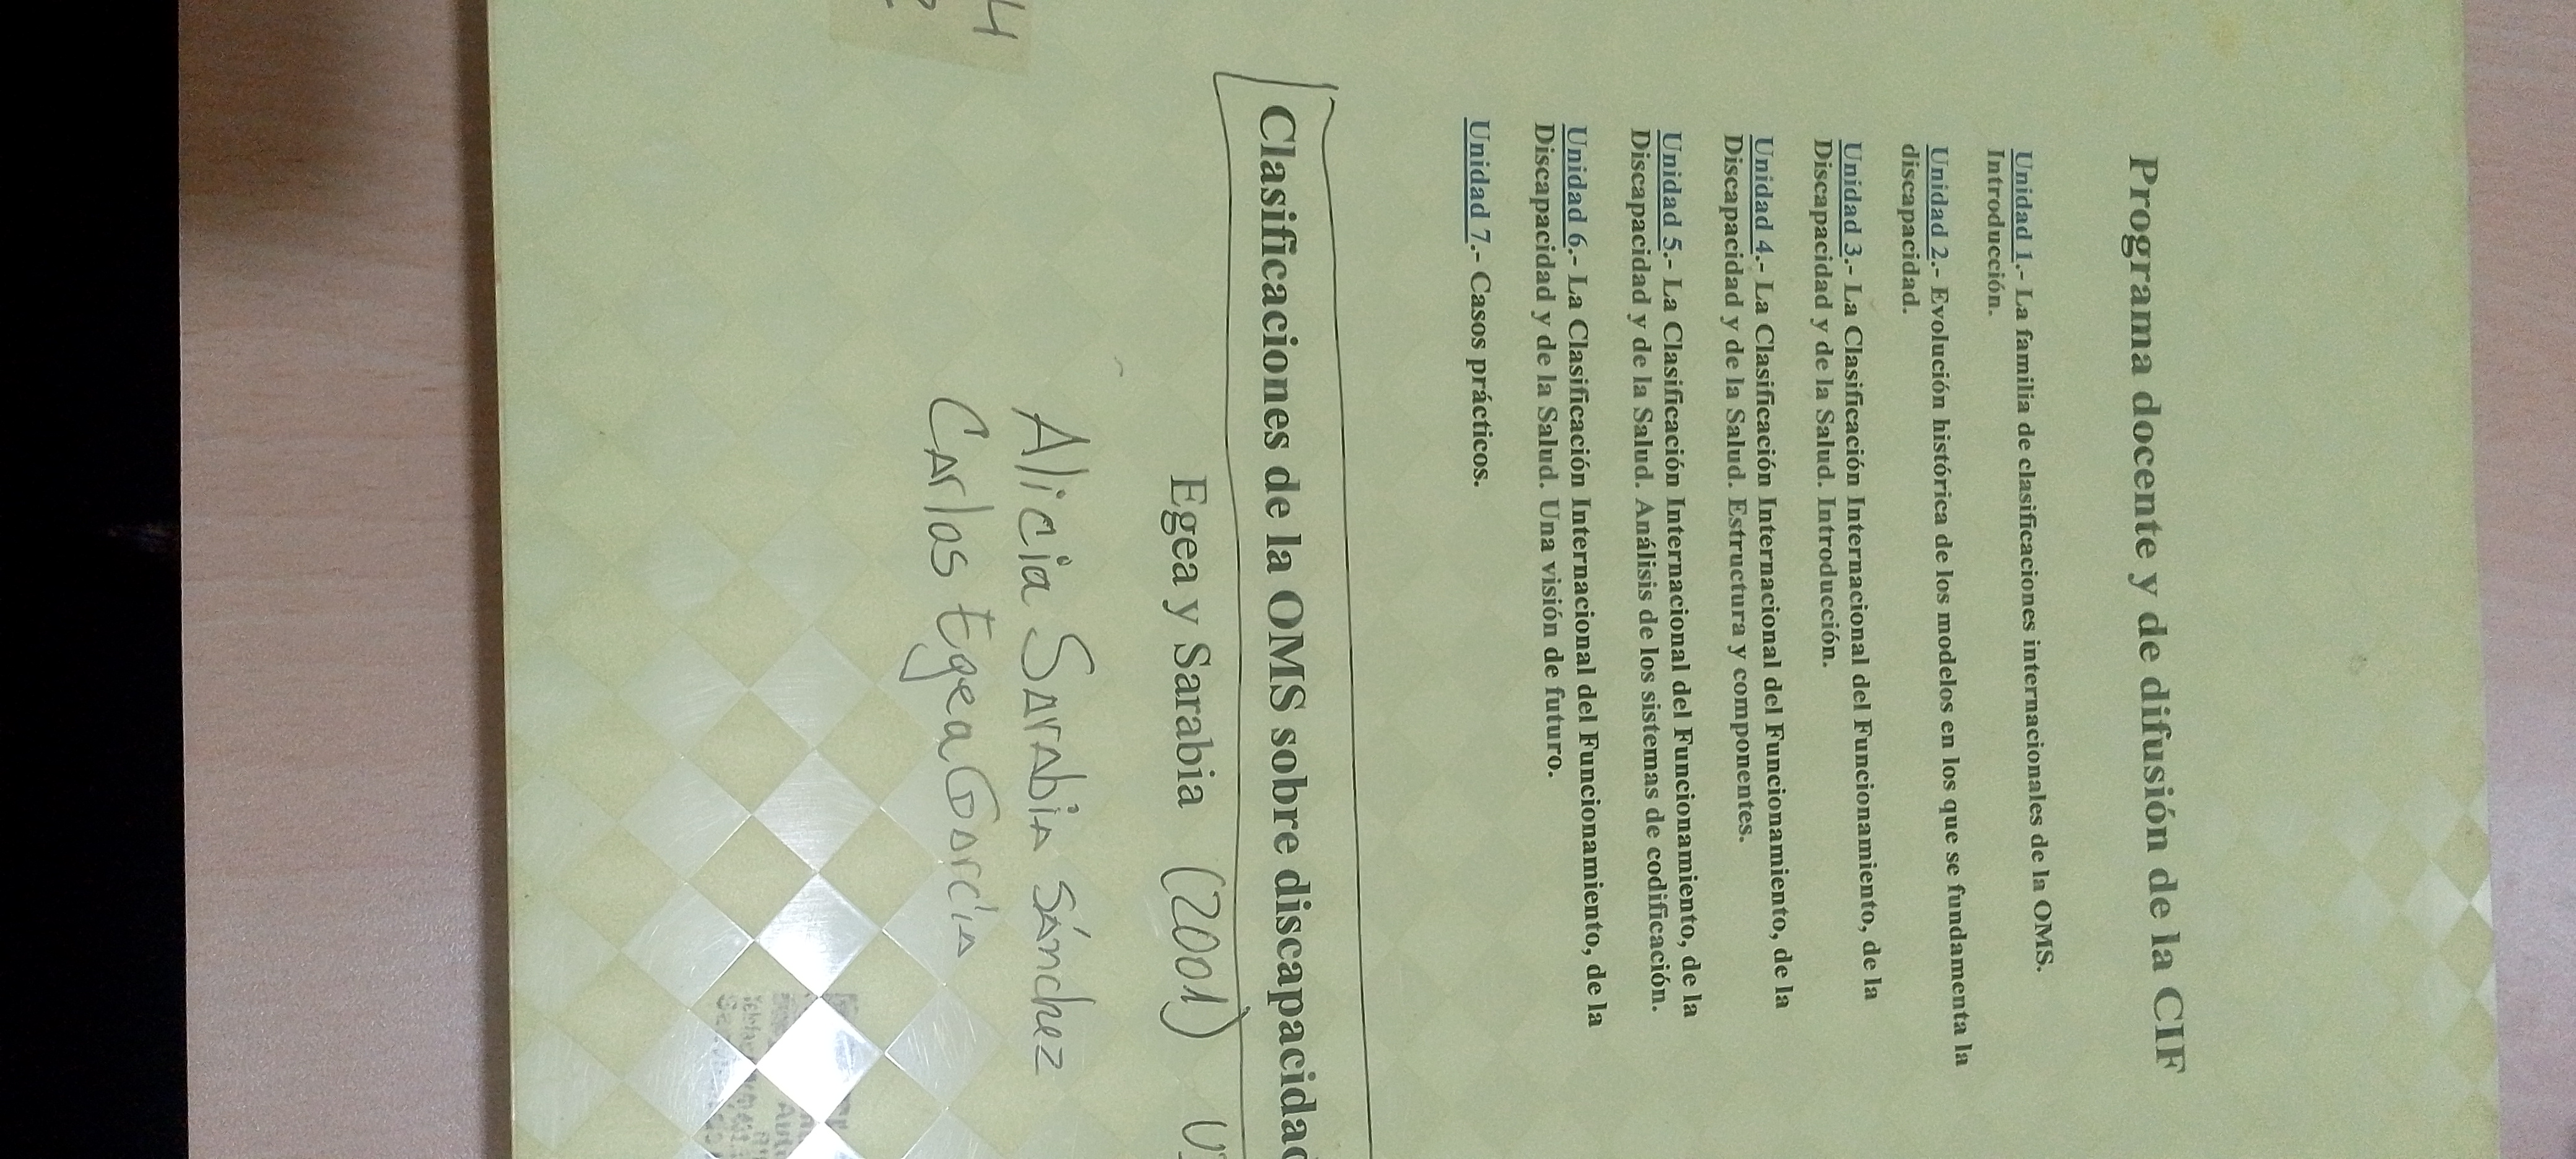 Programa docente y de difusión de la CIF
Unidad 1.- La familia de clasificaciones internacionales de la OMS.
Introducción.
Unidad 2.- Evolución histórica de los modelos en los que se fundamenta la
discapacidad.
Unidad 3.- La Clasificación Internacional del Funcionamiento, de la
Discapacidad y de la Salud. Introducción.
Unidad 4.- La Clasificación Internacional del Funcionamiento, de la
Discapacidad y de la Salud. Estructura y componentes.
Unidad 5.- La Clasificación Internacional del Funcionamiento, de la
Discapacidad y de la Salud. Análisis de los sistemas de codificación.
Unidad 6.- La Clasificación Internacional del Funcionamiento, de la
Discapacidad y de la Salud. Una visión de futuro.
Unidad 7.- Casos prácticos.
Clasificaciones de la OMS sobre discapacidad
Egea y Sarabia (2001)
Alicia Sarabia Sánchez
Carlos Egea García